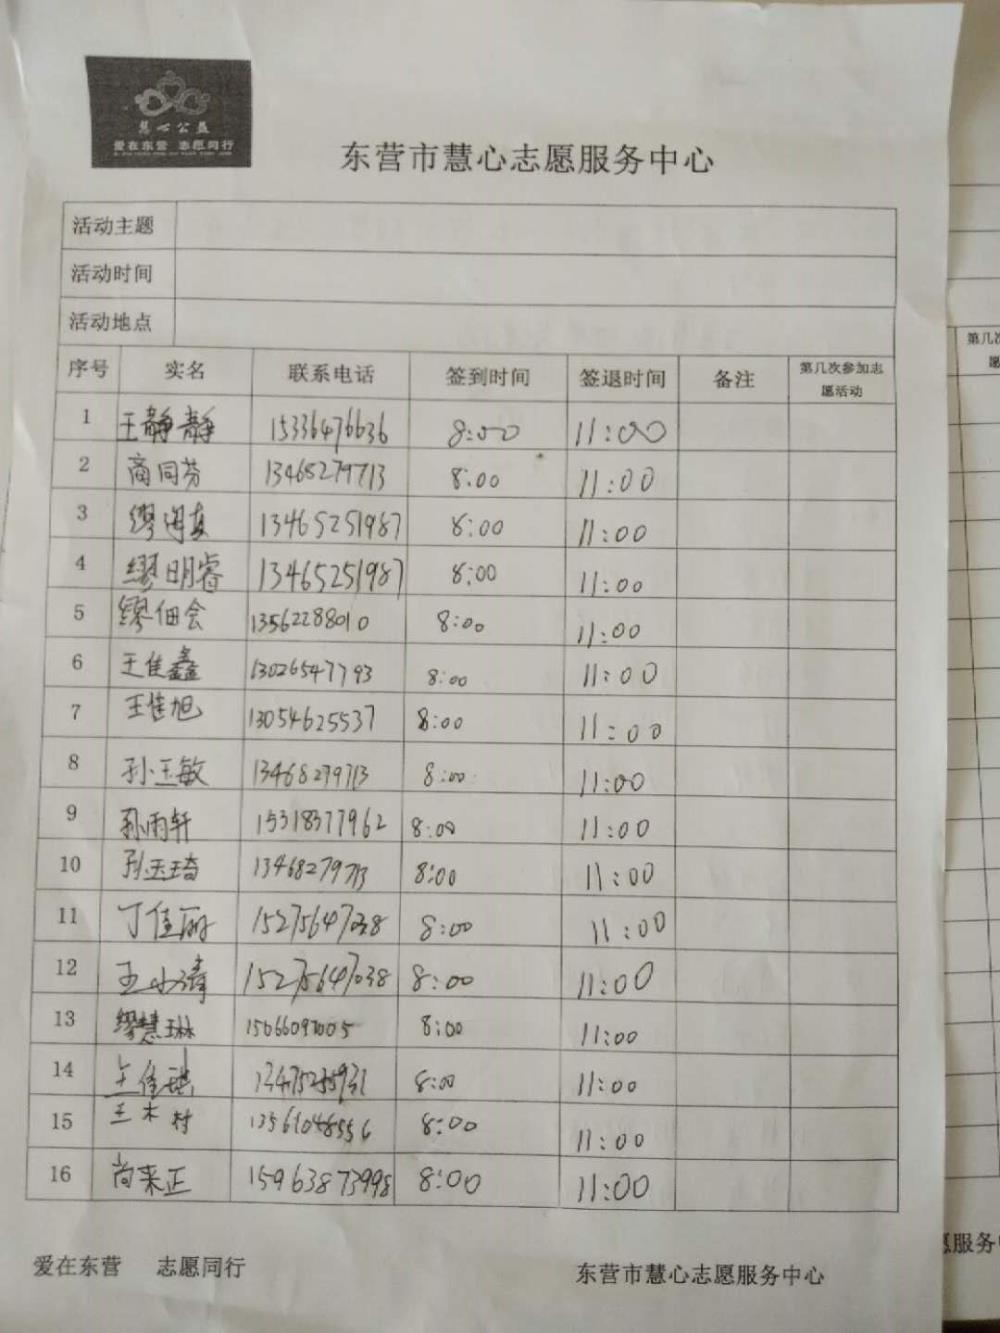 慧心公益
爱在东营 志愿同行
东营市慧心志愿服务中心
活动主题
活动时间
活动地点
序号 实名 联系电话 签到时间 签退时间 备注 第几次参加志愿活动
1 王静静 15336476636 8:00 11:00
2 商同芬 13465279713 8:00 11:00
3 缪 13465251987 8:00 11:00
4 缪明睿 13465251987 8:00 11:00
5 缪佃会 13562288010 8:00 11:00
6 王佳鑫 13026547793 8:00 11:00
7 王佳旭 13054625537 8:00 11:00
8 孙玉敏 13468279713 8:00 11:00
9 孙雨轩 15318377962 8:00 11:00
10 孙玉琦 13468279713 8:00 11:00
11 丁佳丽 15275647038 8:00 11:00
12 王小清 15275647038 8:00 11:00
13 缪慧琳 15066097005 8:00 11:00
14 王佳琪 8:00 11:00
15 王木村 13561048556 8:00 11:00
16 尚来正 15963873998 8:00 11:00
爱在东营 志愿同行
东营市慧心志愿服务中心
第几次
愿服务